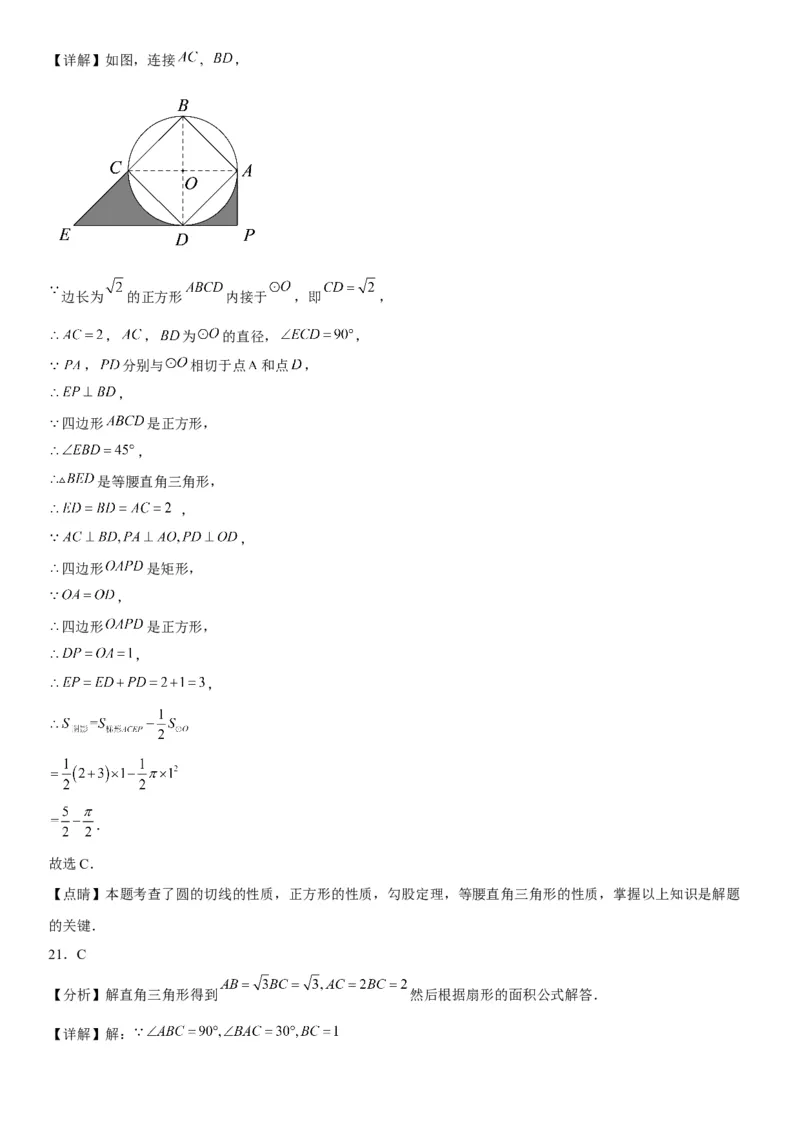 【详解】如图，连接 AC，BD，
B
C
A
O
E
D
P
∵边长为 √2 的正方形 ABCD 内接于 ⊙O，即 CD = √2，
∴ AC = 2，AC，BD 为 ⊙O 的直径，∠ECD = 90°，
∵ PA，PD 分别与 ⊙O 相切于点 A 和点 D，
∴ EP ⊥ BD，
∵四边形 ABCD 是正方形，
∴∠EBD = 45°，
∴△BED 是等腰直角三角形，
∴ ED = BD = AC = 2 ，
∵ AC ⊥ BD, PA ⊥ AO, PD ⊥ OD，
∴四边形 OAPD 是矩形，
∵ OA = OD，
∴四边形 OAPD 是正方形，
∴ DP = OA = 1，
∴ EP = ED + PD = 2 + 1 = 3，
∴ S阴影 = S梯形ACEP − 1/2 S⊙O
= 1/2 (2+3)×1 − 1/2 π×1²
= 5/2 − π/2．
故选 C．
【点睛】本题考查了圆的切线的性质，正方形的性质，勾股定理，等腰直角三角形的性质，掌握以上知识是解题
的关键．
21．C
【分析】解直角三角形得到 AB = √3BC = √3, AC = 2BC = 2 然后根据扇形的面积公式解答．
【详解】解：∵ ∠ABC = 90°, ∠BAC = 30°, BC = 1